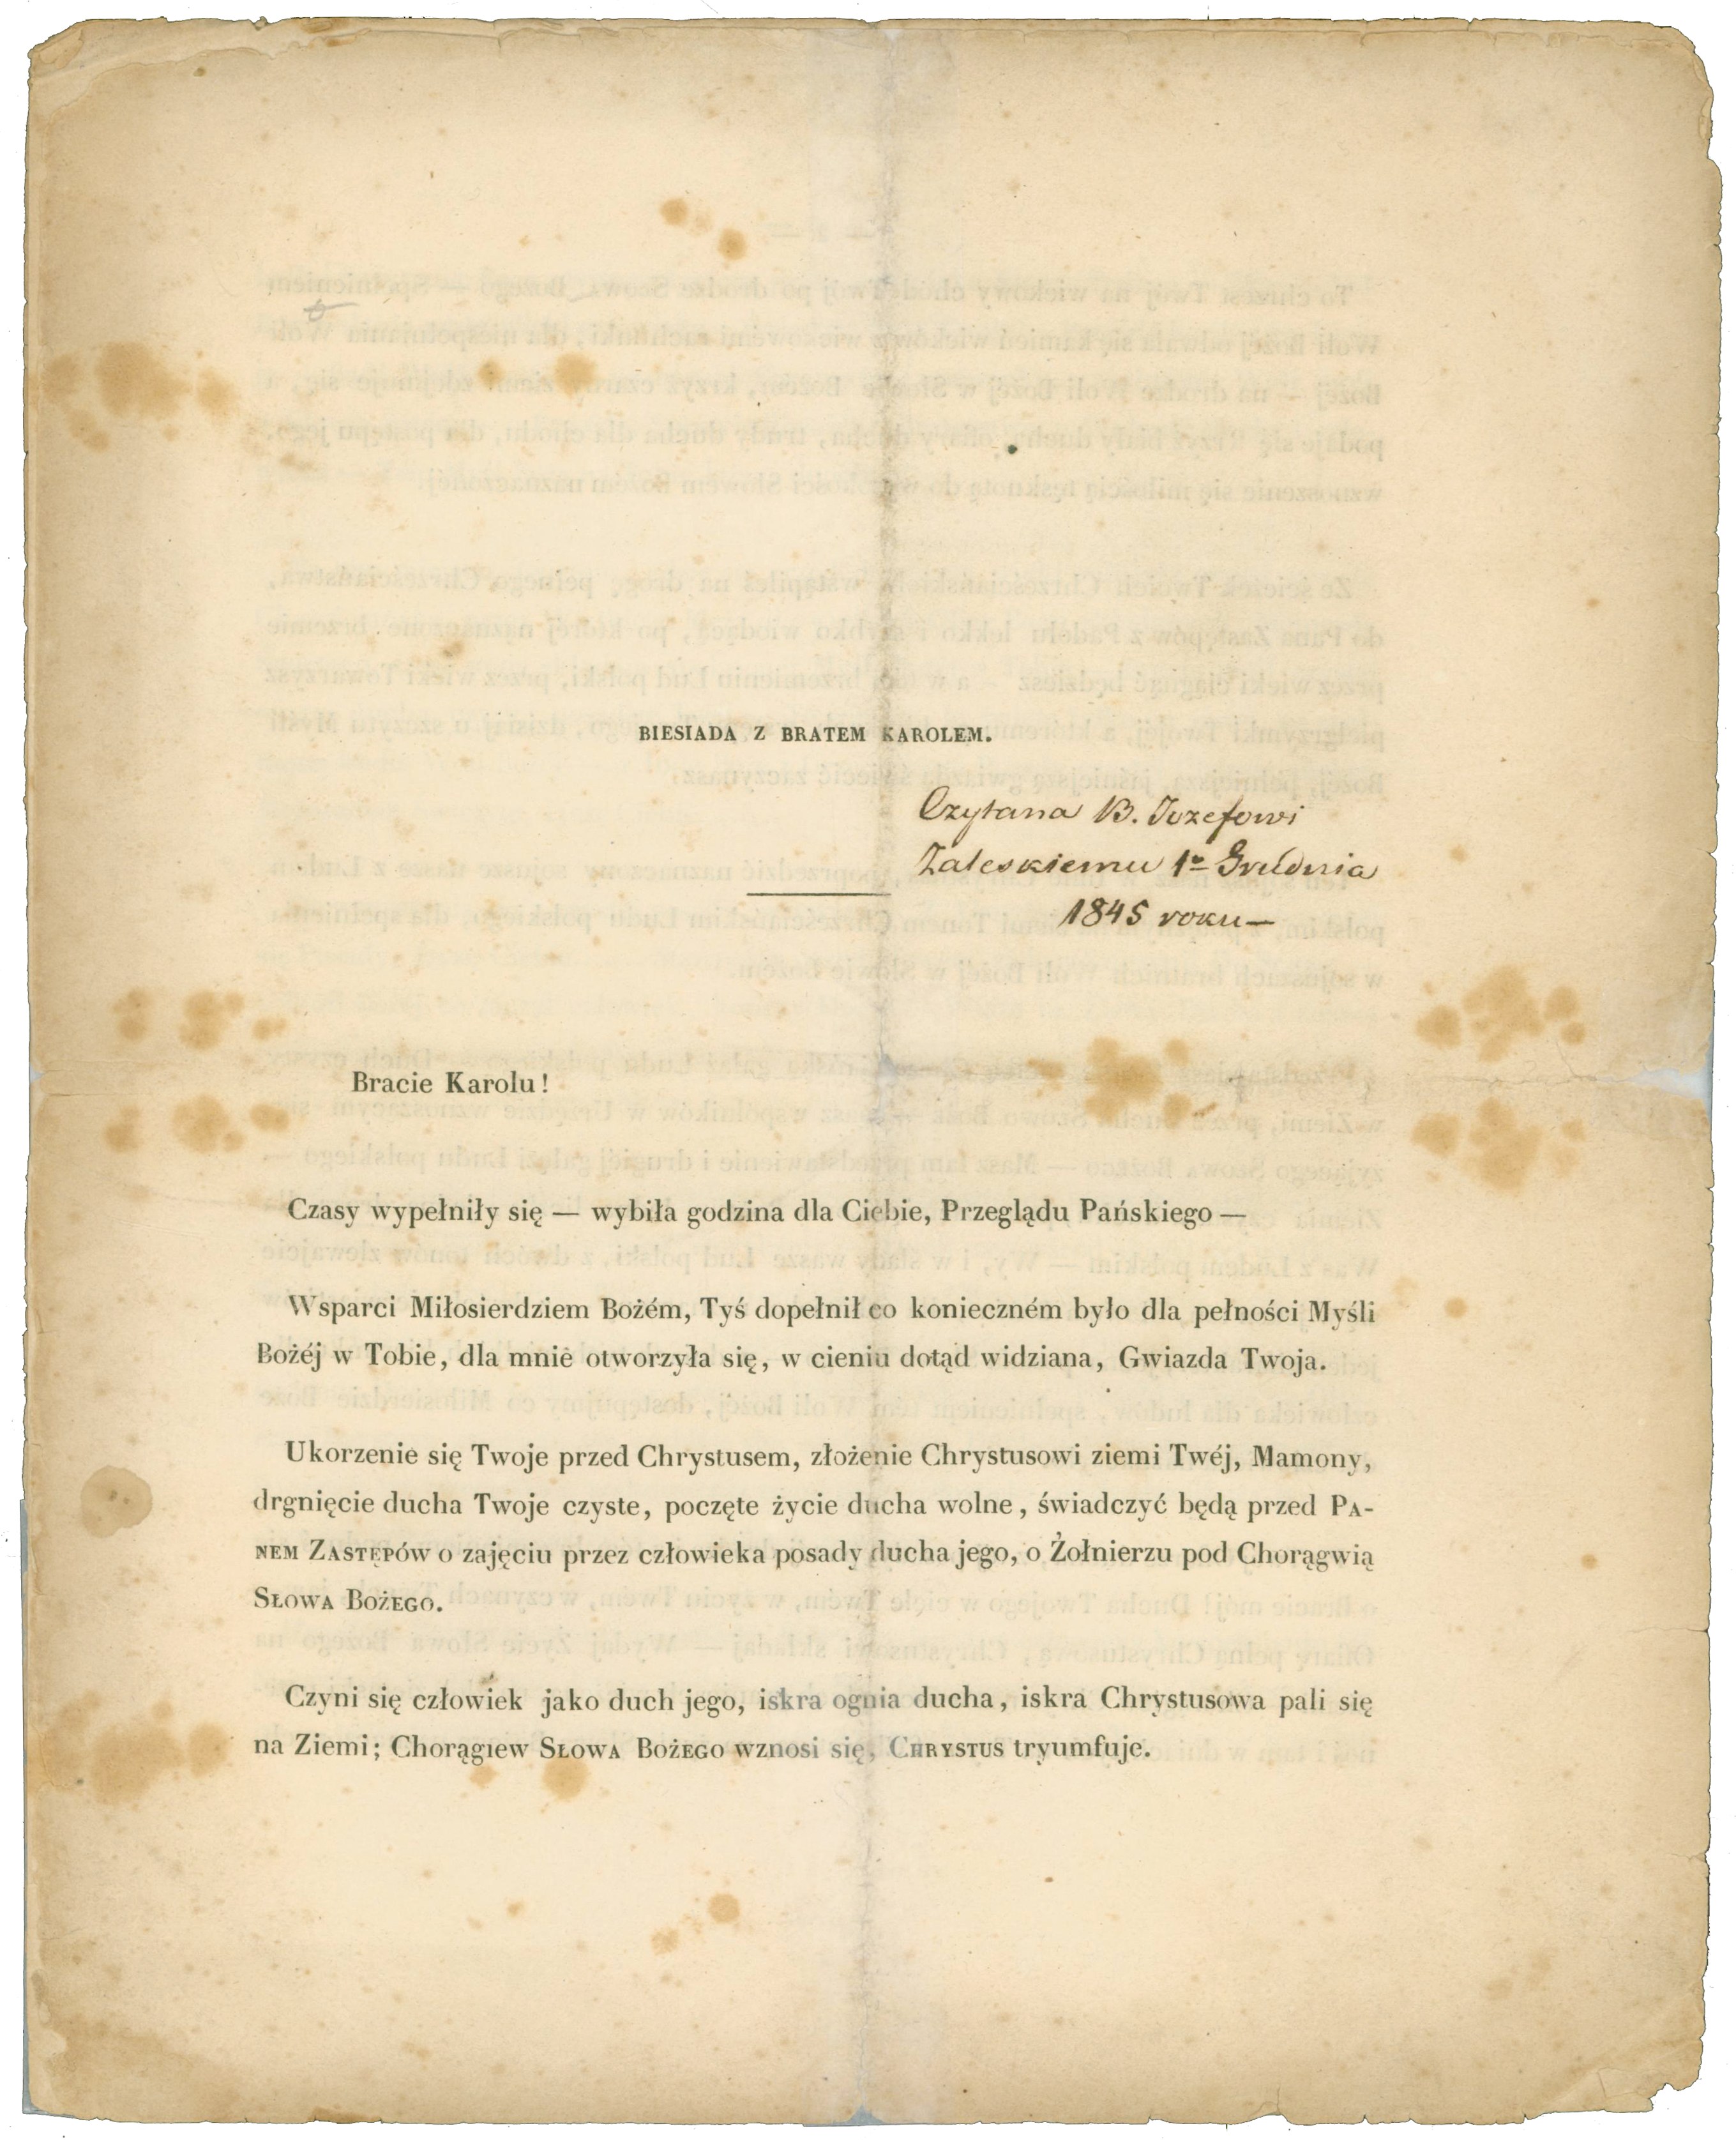 BIESIADA Z BRATEM KAROLEM.
Czytana B. Jozefowi
Zaleskiemu 1º Grudnia
1845 roku—
Bracie Karolu!
Czasy wypełniły się — wybiła godzina dla Ciebie, Przeglądu Pańskiego —
Wsparci Miłosierdziem Bożém, Tyś dopełnił co konieczném było dla pełności Myśli
Bożéj w Tobie, dla mnie otworzyła się, w cieniu dotąd widziana, Gwiazda Twoja.
Ukorzenie się Twoje przed Chrystusem, złożenie Chrystusowi ziemi Twéj, Mamony,
drgnięcie ducha Twoje czyste, poczęte życie ducha wolne, świadczyć będą przed PA-
NEM ZASTĘPÓW o zajęciu przez człowieka posady ducha jego, o Żołnierzu pod Chorągwią
SŁOWA BOŻEGO.
Czyni się człowiek jako duch jego, iskra ognia ducha, iskra Chrystusowa pali się
na Ziemi; Chorągiew SŁOWA BOŻEGO wznosi się, CHRYSTUS tryumfuje.